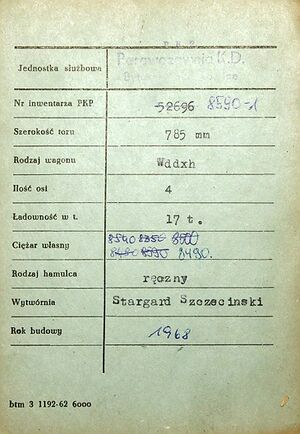 P K P
Jednostka służbowa Parowozownia K.D.
Nr inwentarza PKP 52696 8590-1
Szerokość toru 785 mm
Rodzaj wagonu Wddxh
Ilość osi 4
Ładowność w t. 17 t.
8540 8350 8600
Ciężar własny 8490.
Rodzaj hamulca ręczny
Wytwórnia Stargard Szczecinski
Rok budowy 1968
btm 3 1192-62 6000